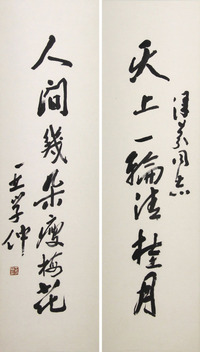 同志
天上一輪清桂月
人間幾朵瘦梅花
王学仲